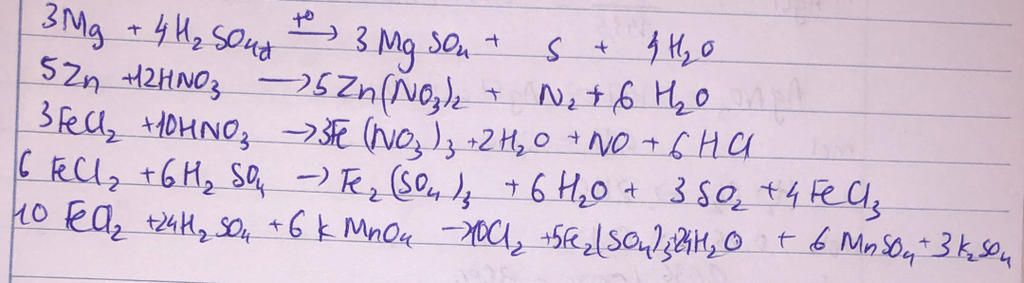 3Mg + 4H₂SO₄đ →(t°) 3MgSO₄ + S + 4H₂O
5Zn + 12HNO₃ → 5Zn(NO₃)₂ + N₂ + 6H₂O
3FeCl₂ + 10HNO₃ → 3Fe(NO₃)₃ + 2H₂O + NO + 6HCl
6FeCl₂ + 6H₂SO₄ → Fe₂(SO₄)₃ + 6H₂O + 3SO₂ + 4FeCl₃
10FeCl₂ + 24H₂SO₄ + 6KMnO₄ → 10Cl₂ + 5Fe₂(SO₄)₃ + 24H₂O + 6MnSO₄ + 3K₂SO₄